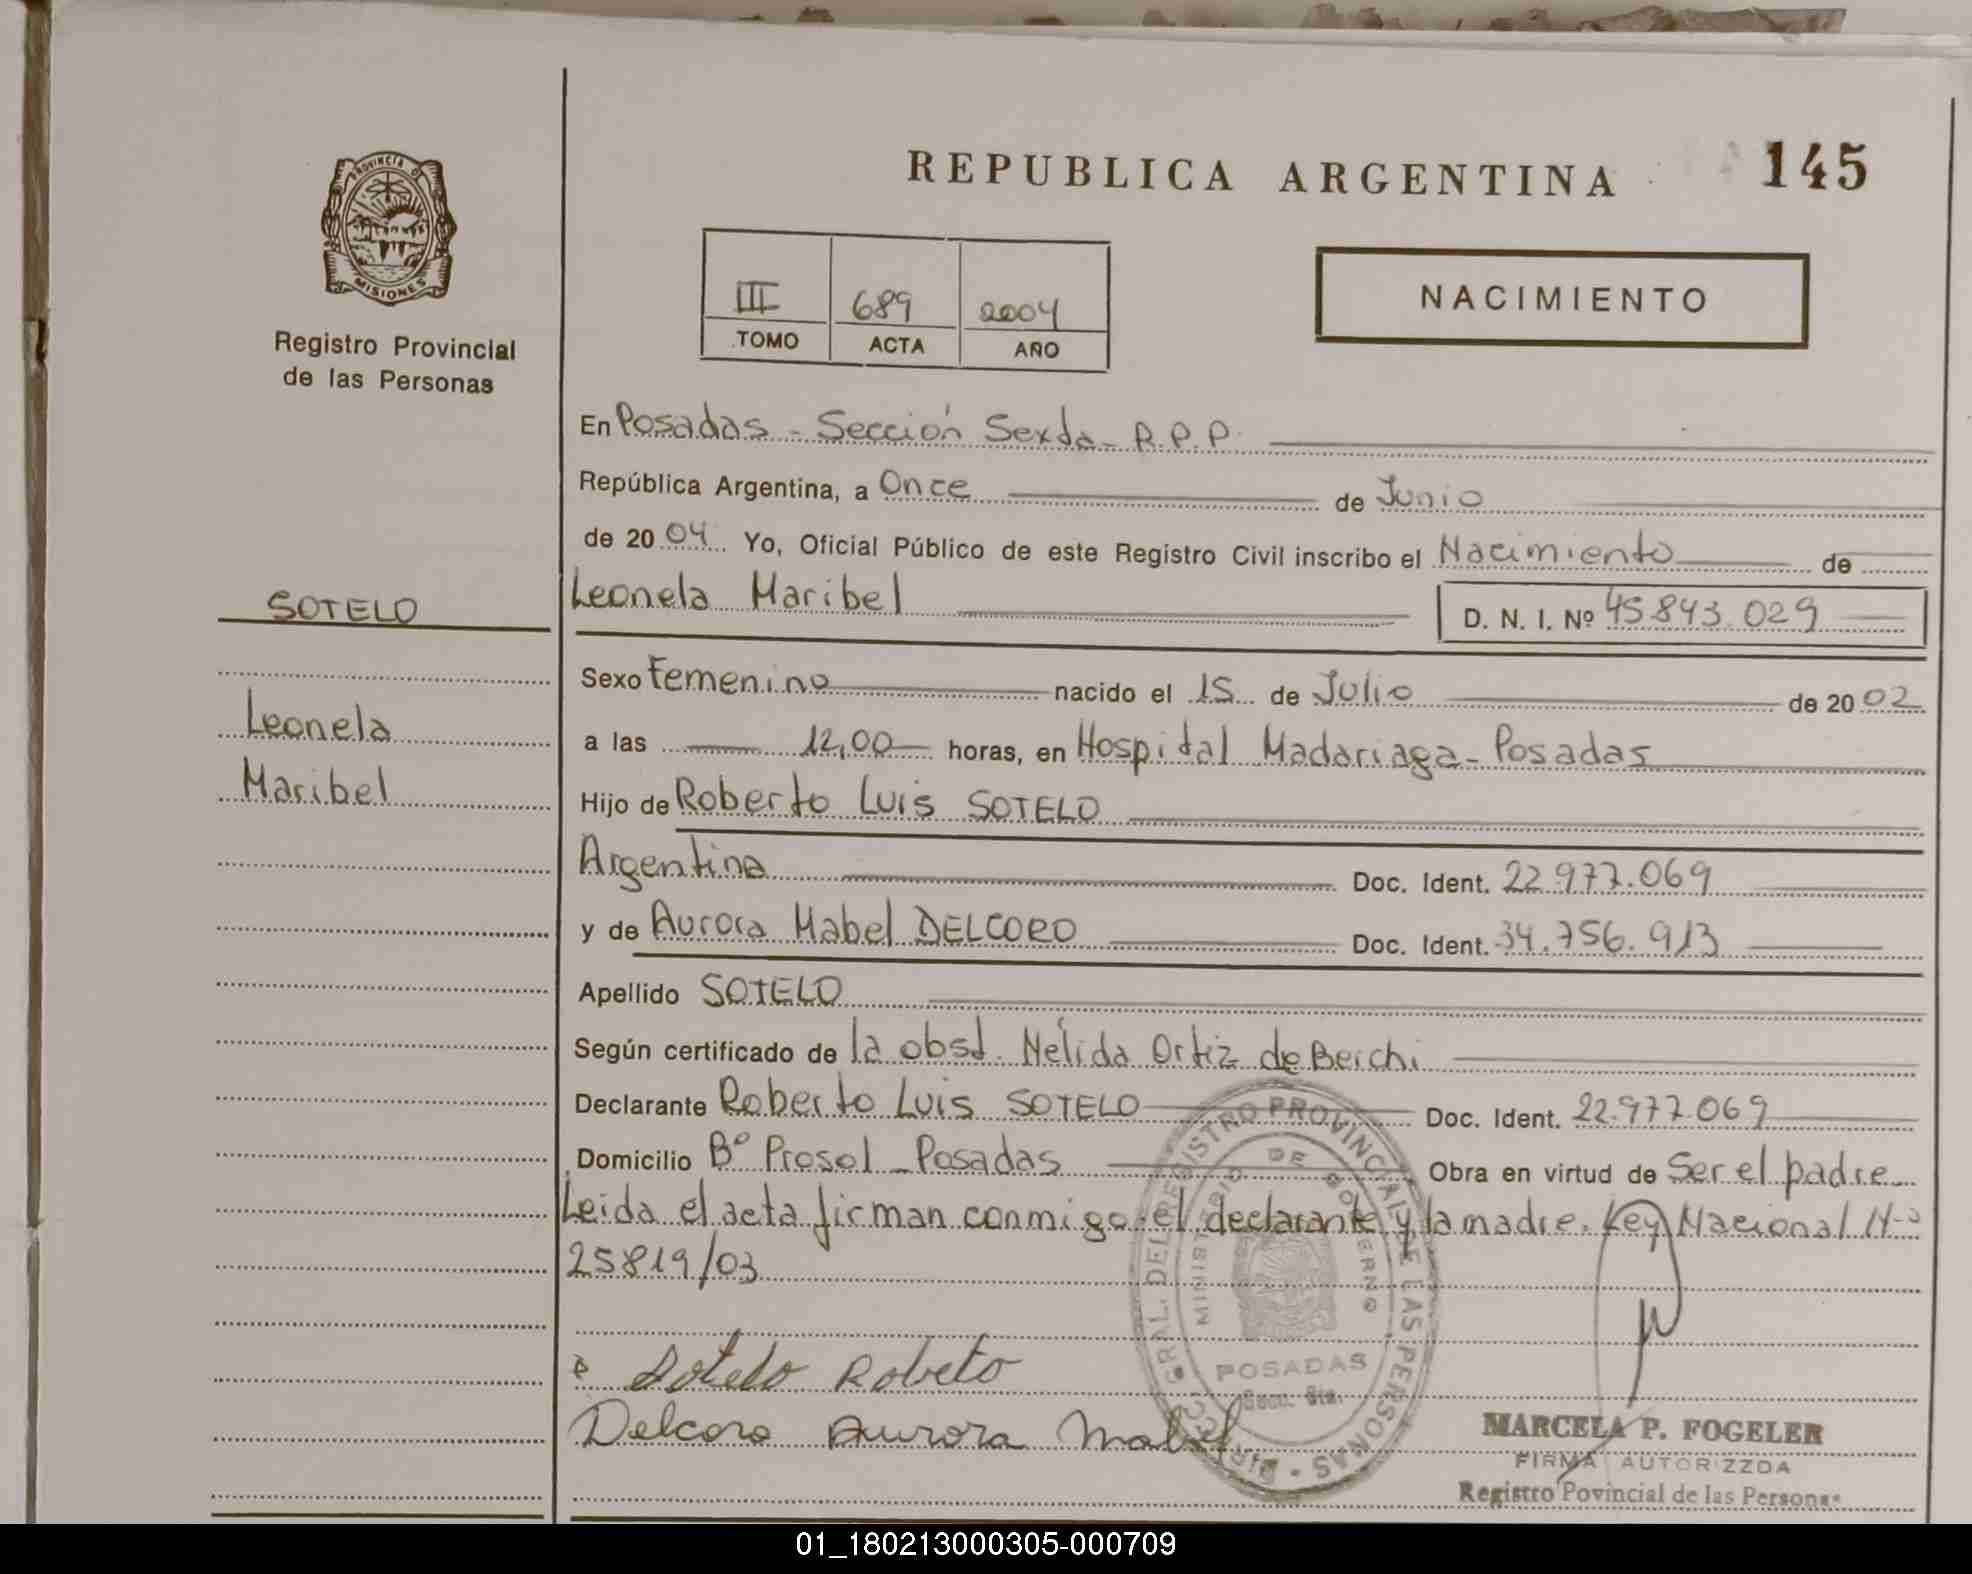 REPUBLICA ARGENTINA
145
PROVINCIA DE
MISIONES
Registro Provincial
de las Personas
III
689
2004
TOMO
ACTA
AÑO
NACIMIENTO
En Posadas - Sección Sexta - R.P.P.
República Argentina, a Once de Junio
de 20 04 Yo, Oficial Público de este Registro Civil inscribo el Nacimiento de
SOTELO
Leonela Maribel
D. N. I. Nº 45.843.029
Sexo Femenino nacido el 15 de Julio de 20 02
Leonela
a las 12,00 horas, en Hospital Madariaga - Posadas
Maribel
Hijo de Roberto Luis SOTELO
Argentina Doc. Ident. 22.977.069
y de Aurora Mabel DELCORO Doc. Ident. 34.756.913
Apellido SOTELO
Según certificado de la obst. Nélida Ortiz de Beichi
Declarante Roberto Luis SOTELO Doc. Ident. 22.977.069
Domicilio Bº Prosol - Posadas Obra en virtud de Ser el padre
Leida el acta firman conmigo el declarante y la madre. Ley Nacional Nº
25819/03
Sotelo Robeto
Delcoro Aurora Mabel
GRAL. DEL REGISTRO PROVINCIAL DE LAS PERSONAS
MINISTERIO DE GOBIERNO
POSADAS
MARCELA P. FOGELER
FIRMA AUTORIZZDA
Registro Povincial de las Personas
01_180213000305-000709